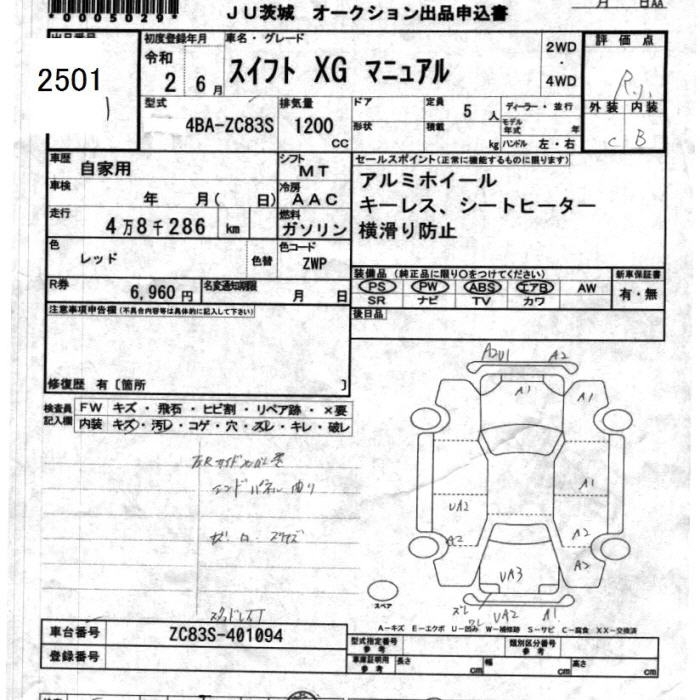 *0005029*
JU茨城 オークション出品申込書
月 日AA
出品番号
2501
初度登録年月
令和 2 6月
車名・グレード
スイフト XG マニュアル
2WD
・
4WD
評価点
R.
外装 内装
C B
型式
4BA-ZC83S
排気量
1200
CC
ドア
形状
定員 5 人
積載 kg
ディーラー・並行
モデル年式 年
ハンドル 左・右
車歴
自家用
シフト
MT
車検
年 月( 日)
冷房
AAC
走行
4万8千286 km
燃料
ガソリン
色
レッド
色替
色コード
ZWP
R券
6,960円
名変通知期限
月 日
セールスポイント(正常に機能するものに限ります)
アルミホイール
キーレス、シートヒーター
横滑り防止
装備品(純正品に限り○をつけてください)
PS PW ABS エアB AW
SR ナビ TV カワ
新車保証書
有・無
後日品
注意事項申告欄(不具合内容等は具体的に記入して下さい)
修復歴 有〔箇所 〕
検査員記入欄
FW キズ・飛石・ヒビ割・リペア跡・×要
内装 キズ・汚レ・コゲ・穴・スレ・キレ・破レ
エンドパネル曲り
A2U1 A2
A1 A1
A1
UA2
A2 A2
A2
UA3
ズレ
UA2 A1
スペア
A-キズ E-エクボ U-凹み W-補修跡 S-サビ C-腐食 XX-交換済
車台番号
ZC83S-401094
登録番号
型式指定番号 参考
類別区分番号 参考
車庫証明用 参考
長さ cm
幅 cm
高さ cm